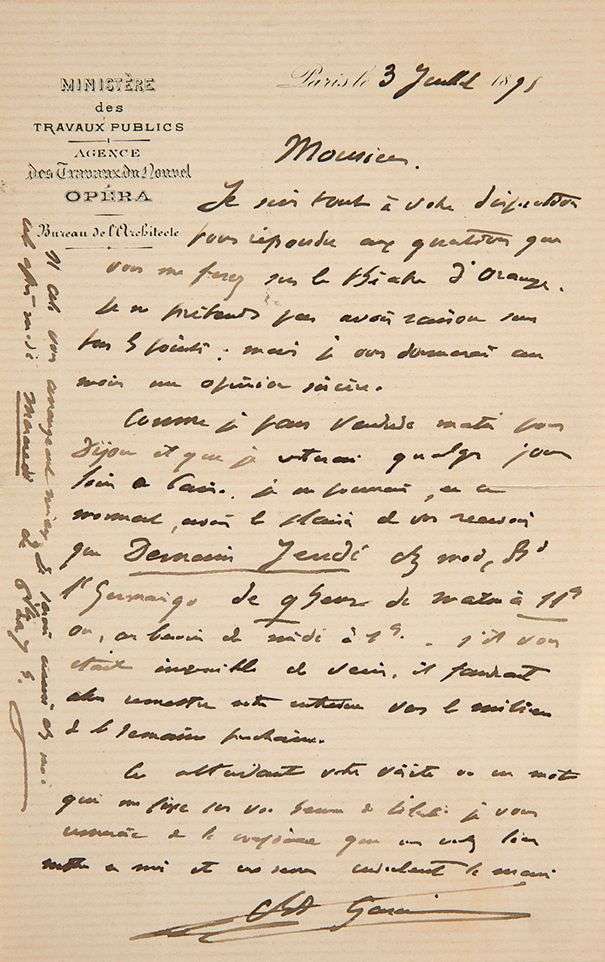 MINISTÈRE
des
TRAVAUX PUBLICS
AGENCE
des Travaux du Nouvel
OPÉRA
Bureau de l'Architecte
Paris le 3 Juillet 189
Monsieur.
Je suis tout à votre disposition
pour répondre aux questions que
vous me ferez sur le théatre d'Orange.
Je ne prétends pas avoir raison sur
tous les points; mais je vous donnerai au
moins une opinion sincère.
Comme je pars vendredi matin pour
Dijon et que je resterai quelques jours
loin de Paris, je ne pourrai, en ce
moment, avoir le plaisir de vous recevoir
que Demain Jeudi chez moi, Bd
St Germain 90 de 9 heures du matin à 11h
ou, au besoin de midi à 1h. S'il vous
était impossible de venir, il faudrait
alors remettre notre entrevue vers le milieu
de la semaine prochaine.
En attendant votre visite ou un mot
qui me fixe sur vos heures de liberté je vous
remercie de la confiance que vous voulez bien
mettre en moi et vous serre cordialement la main
Ch Garnier